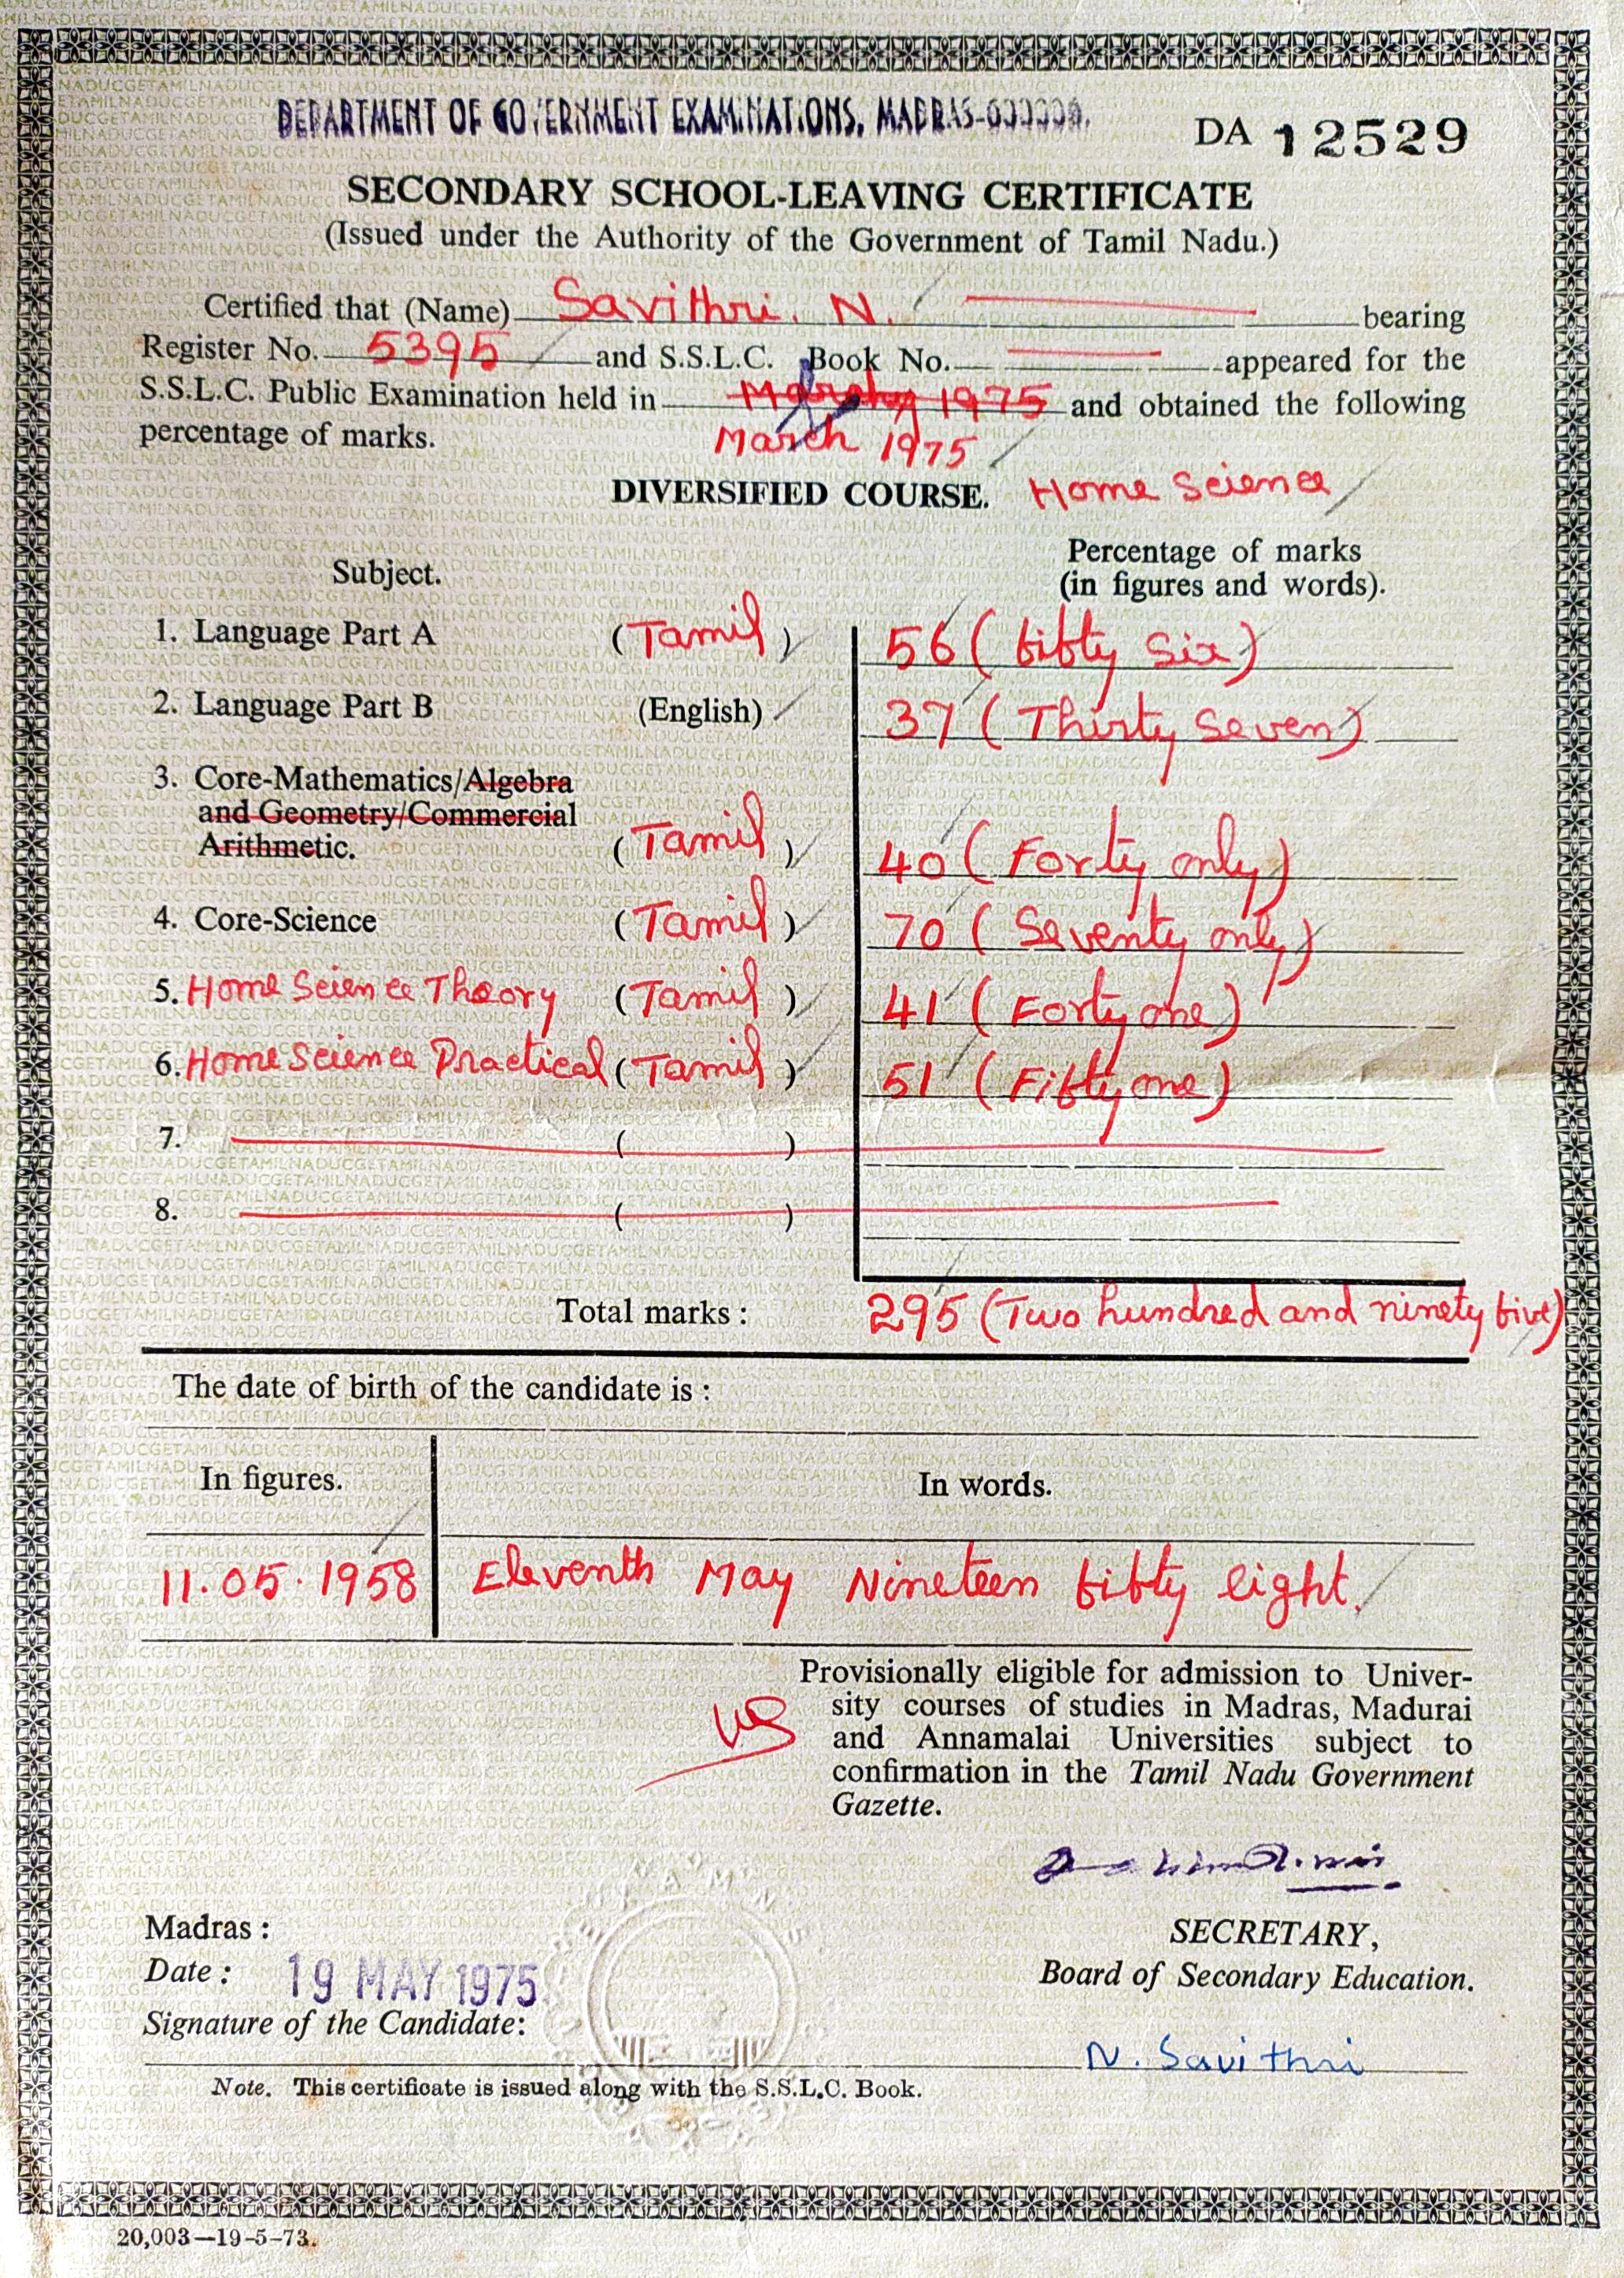 DEPARTMENT OF GOVERNMENT EXAMINATIONS, MADRAS-
DA 12529
SECONDARY SCHOOL-LEAVING CERTIFICATE
(Issued under the Authority of the Government of Tamil Nadu.)
Certified that (Name) Savithri. N. bearing
Register No. 5395 and S.S.L.C. Book No. appeared for the
S.S.L.C. Public Examination held in 1975 and obtained the following
percentage of marks. March 1975
DIVERSIFIED COURSE. Home Science
Subject. Percentage of marks
(in figures and words).
1. Language Part A (Tamil) 56 (fifty six)
2. Language Part B (English) 37 (Thirty Seven)
3. Core-Mathematics/Algebra
and Geometry/Commercial
Arithmetic. (Tamil) 40 (Forty only)
4. Core-Science (Tamil) 70 (Seventy only)
5. Home Science Theory (Tamil) 41 (Forty one)
6. Home Science Practical (Tamil) 51 (Fifty one)
7. ( )
8. ( )
Total marks : 295 (Two hundred and ninety five)
The date of birth of the candidate is :
In figures. In words.
11.05.1958 Eleventh May Nineteen fifty eight.
Provisionally eligible for admission to Univer-
sity courses of studies in Madras, Madurai
and Annamalai Universities subject to
confirmation in the Tamil Nadu Government
Gazette.
Madras :
SECRETARY,
Date : 19 MAY 1975
Board of Secondary Education.
Signature of the Candidate:
N. Savithri
Note. This certificate is issued along with the S.S.L.C. Book.
20,003—19-5-73.